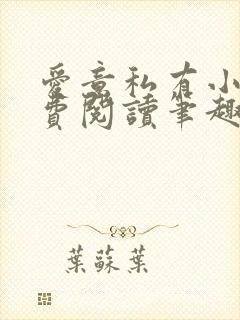 愛意私有小
費閱讀筆趣
葉蘇葉